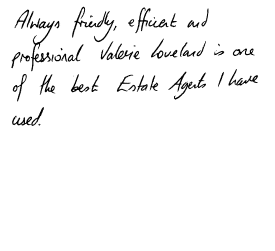 Always friendly, efficient and
professional Valerie Loveland is one
of the best Estate Agents I have
used.